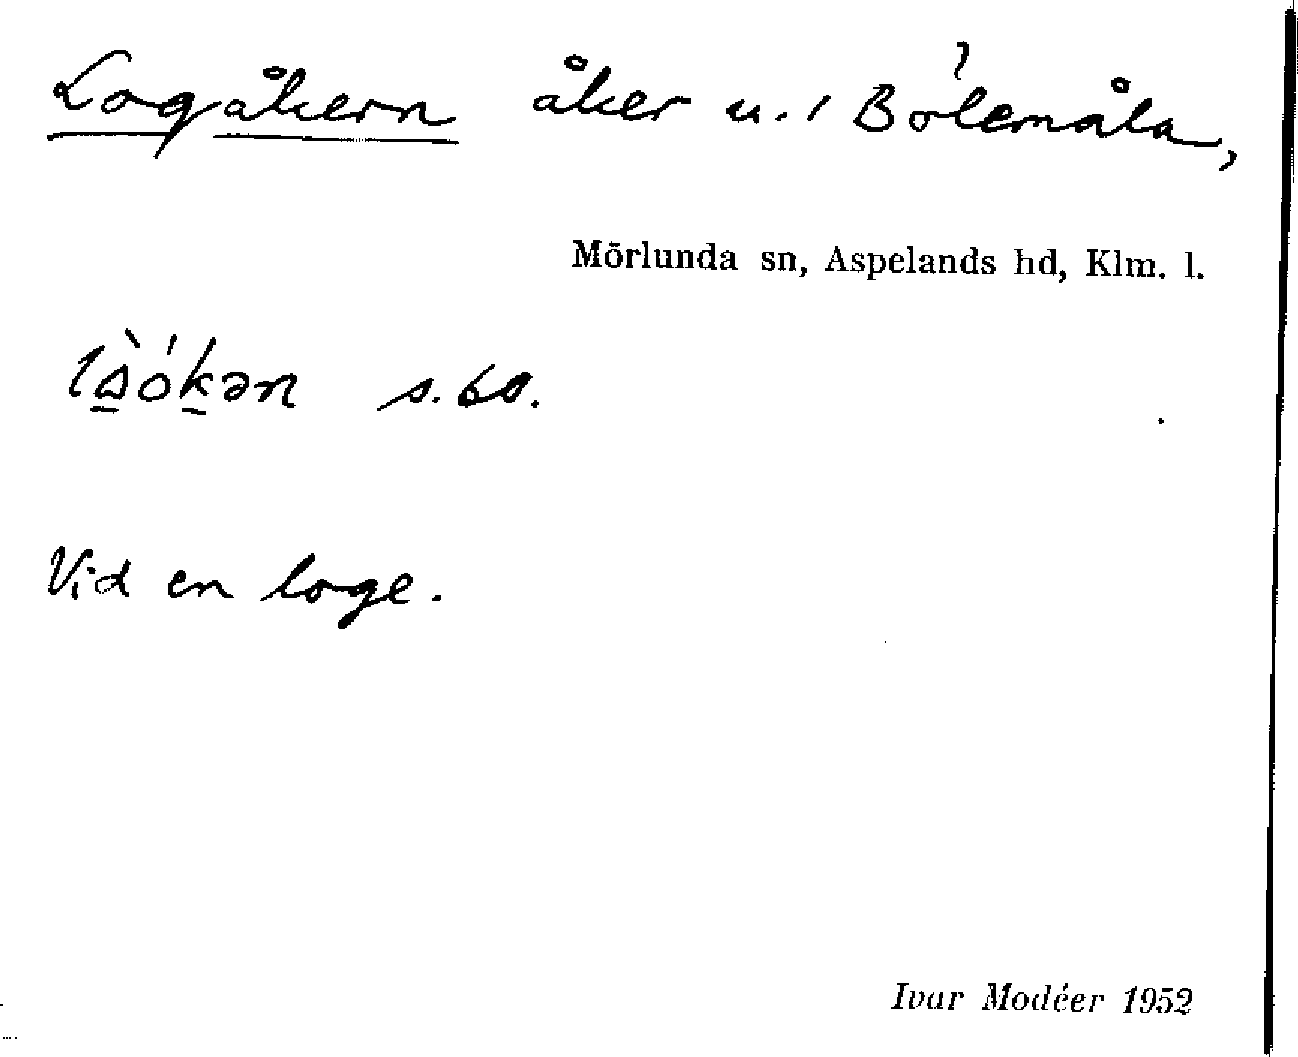 Logåkern åker u. Bolemåla,
Mörlunda sn, Aspelands hd, Klm. l.
s. bo.
Vid en loge.
Ivar Modéer 1952